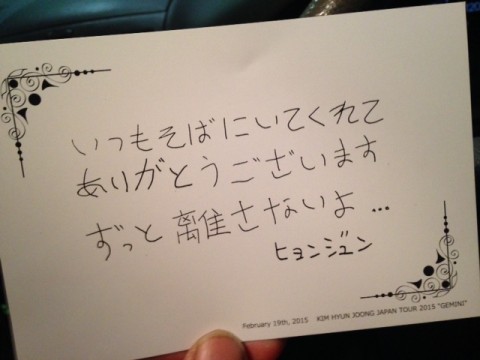 いつもそばにいてくれて
ありがとうございます
ずっと離さないよ...
ヒョンジュン
February 19th, 2015 KIM HYUN JOONG JAPAN TOUR 2015 "GEMINI"